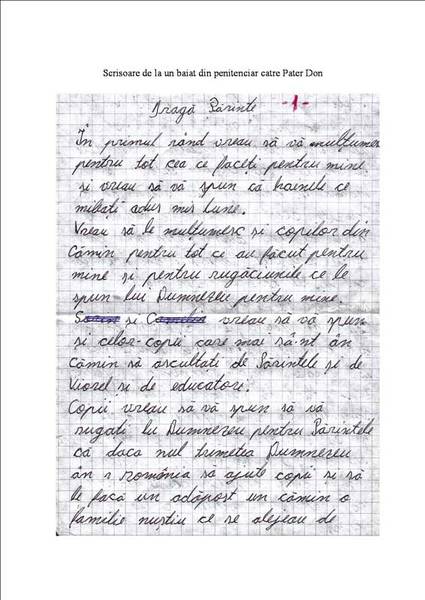 Scrisoare de la un baiat din penitenciar catre Pater Don
Dragă Părinte -1-
În primul rând vreau să vă mulțumesc
pentru tot cea ce faceți pentru mine
și vreau să vă spun ca hainele ce
miați adus mis bune.
Vreau să le mulțumesc și copilor din
Cămin pentru tot ce au făcut pentru
mine și pentru rugăciunile ce le
spun lui Dumnezeu pentru mine.
și vreau să vă spun
și celor copii care mai sânt ân
Cămin să ascultati de Părintele și de
Viorel și de educatore.
Copii vreau sa vă spun să vă
rugati lu Dumnezeu pentru Părintele
că daca nul trimetea Dumnezeu
ân România să ajute copii și să
le facă un adăpost un cămin o
familie nuștiu ce se alejeau de